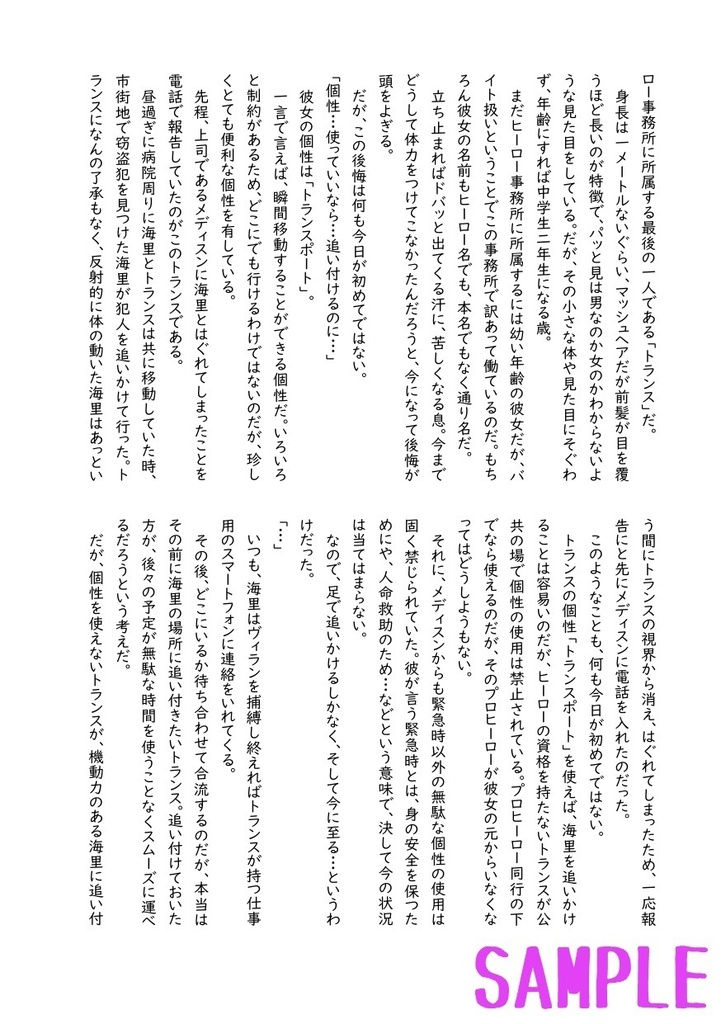 ロー事務所に所属する最後の一人である「トランス」だ。
身長は一メートルないぐらい、マッシュヘアだが前髪が目を覆
うほど長いのが特徴で、パッと見は男なのか女のかわからないよ
うな見た目をしている。だが、その小さな体や見た目にそぐわ
ず、年齢にすれば中学生二年生になる歳。
まだヒーロー事務所に所属するには幼い年齢の彼女だが、バ
イト扱いということでこの事務所で訳あって働ているのだ。もち
ろん彼女の名前もヒーロー名でも、本名でもなく通り名だ。
立ち止まればドバッと出てくる汗に、苦しくなる息。今まで
どうして体力をつけてこなかったんだろうと、今になって後悔が
頭をよぎる。
だが、この後悔は何も今日が初めてではない。
「個性…使っていいなら…追い付けるのに…」
彼女の個性は「トランスポート」。
一言で言えば、瞬間移動することができる個性だ。いろいろ
と制約があるため、どこにでも行けるわけではないのだが、珍し
くとても便利な個性を有している。
先程、上司であるメディスンに海里とはぐれてしまったことを
電話で報告していたのがこのトランスである。
昼過ぎに病院周りに海里とトランスは共に移動していた時、
市街地で窃盗犯を見つけた海里が犯人を追いかけて行った。ト
ランスになんの了承もなく、反射的に体の動いた海里はあっとい
う間にトランスの視界から消え、はぐれてしまったため、一応報
告にと先にメディスンに電話を入れたのだった。
このようなことも、何も今日が初めてではない。
トランスの個性「トランスポート」を使えば、海里を追いかけ
ることは容易いのだが、ヒーローの資格を持たないトランスが公
共の場で個性の使用は禁止されている。プロヒーロー同行の下
でなら使えるのだが、そのプロヒーローが彼女の元からいなくな
ってはどうしようもない。
それに、メディスンからも緊急時以外の無駄な個性の使用は
固く禁じられていた。彼が言う緊急時とは、身の安全を保つた
めにや、人命救助のため…などという意味で、決して今の状況
は当てはまらない。
なので、足で追いかけるしかなく、そして今に至る…というわ
けだった。
「…」
いつも、海里はヴィランを捕縛し終えればトランスが持つ仕事
用のスマートフォンに連絡をいれてくる。
その後、どこにいるか待ち合わせて合流するのだが、本当は
その前に海里の場所に追い付きたいトランス。追い付けておいた
方が、後々の予定が無駄な時間を使うことなくスムーズに運べ
るだろうという考えだ。
だが、個性を使えないトランスが、機動力のある海里に追い付
SAMPLE